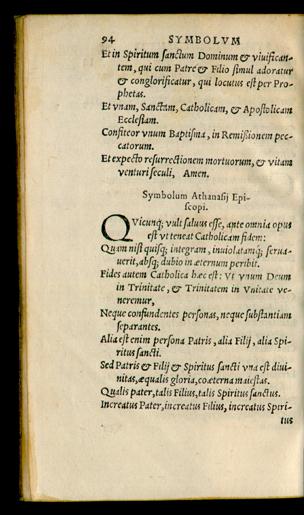 94 SYMBOLVM
Et in Spiritum sanctum Dominum & viuifican-
tem, qui cum Patre & Filio simul adoratur
& conglorificatur, qui locutus est per Pro-
phetas.
Et vnam, Sanctam, Catholicam, & Apostolicam
Ecclesiam.
Confiteor vnum Baptisma, in Remissionem pec-
catorum.
Et expecto resurrectionem mortuorum, & vitam
venturi seculi, Amen.
Symbolum Athanasij Epi-
scopi.
QVicunq; vult saluus esse, ante omnia opus
est vt teneat Catholicam fidem:
Quam nisi quisq; integram, inuiolatamq; serua-
uerit, absq; dubio in æternum peribit.
Fides autem Catholica hæc est: Vt vnum Deum
in Trinitate, & Trinitatem in Vnitate ve-
neremur,
Neque confundentes personas, neque substantiam
separantes.
Alia est enim persona Patris, alia Filij, alia Spi-
ritus sancti.
Sed Patris & Filij & Spiritus sancti vna est diui-
nitas, æqualis gloria, coæterna maiestas.
Qualis pater, talis Filius, talis Spiritus sanctus.
Increatus Pater, increatus Filius, increatus Spiri-
tus